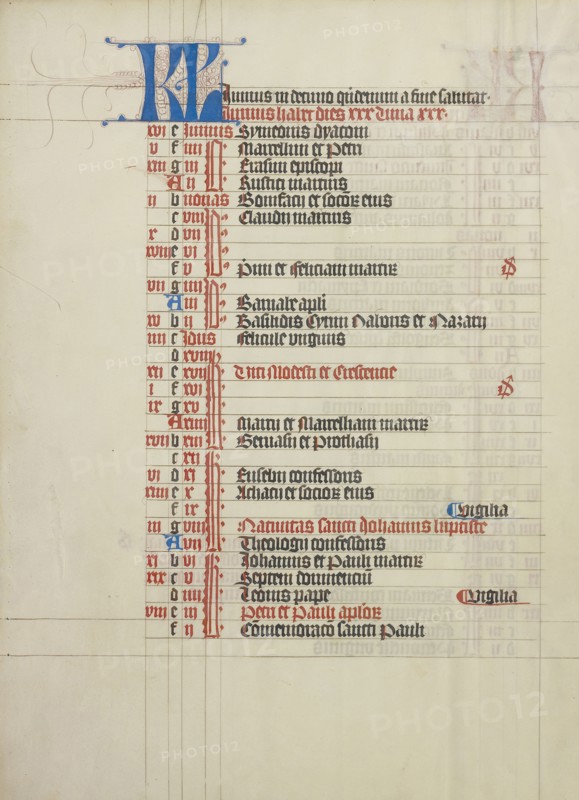 KL Iunius in decimo qĩdenum a fine salutat.
Iunius habet dies xxx luna xxx.
xvi e Iunius Symeonis dyaconi
v f iiii N Marcellini et Petri
xiii g iii Erasmi episcopi
A ii Rustici martiris
ii b nonas Bonifacii et socioꝝ eius
c viii Claudii martiris
x d vii
xviii e vi
f v Pimi et Feliciani martiꝝ
vii g iiii
A iii Barnabe apli
xv b ii Basilidis Cyrini Naboris et Nazarii
iiii c Idus Felicule virginis
d xviii
xii e xvii Viti Modesti et Crescentie
i f xvi
ix g xv
A xiiii Marci et Marcelliani martiꝝ
xvii b xiii Geruasii et Prothasii
c xii
vi d xi Eusebii confessoris
xiiii e x Achacii et socioꝝ eius
f ix Vigilia
iii g viii Natiuitas sancti Johannis baptiste
A vii Theologii confessoris
xi b vi Johannis et Pauli martiꝝ
xix c v Septem dormienciũ
d iiii Leonis pape Vigilia
viii e iii Petri et Pauli aploꝝ
f ii Cõmemoracõ sancti Pauli
PHOTO12